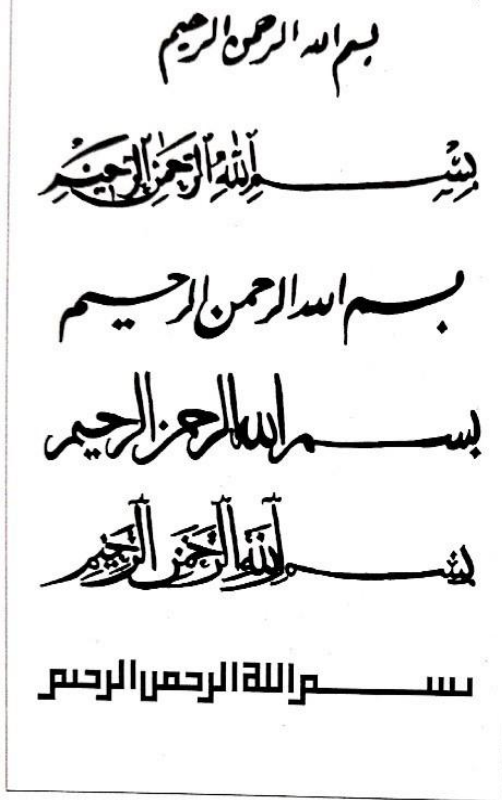 بسم الله الرحمن الرحيم
بِسْمِ اللهِ الرَّحْمٰنِ الرَّحِيمِ
بسم الله الرحمن الرحيم
بسم الله الرحمن الرحيم
بِسْمِ اللهِ الرَّحْمٰنِ الرَّحِيمِ
بسم الله الرحمن الرحيم